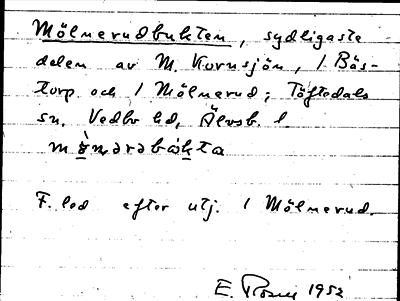 Mölnerudbukten, sydligaste
delen av M. Kornsjön, 1 Bös-
torp och 1 Mölnerud; Töftedals
sn, Vedbo hd, Älvsb. l.
F. lod efter utj. 1 Mölnerud.
E. 1952